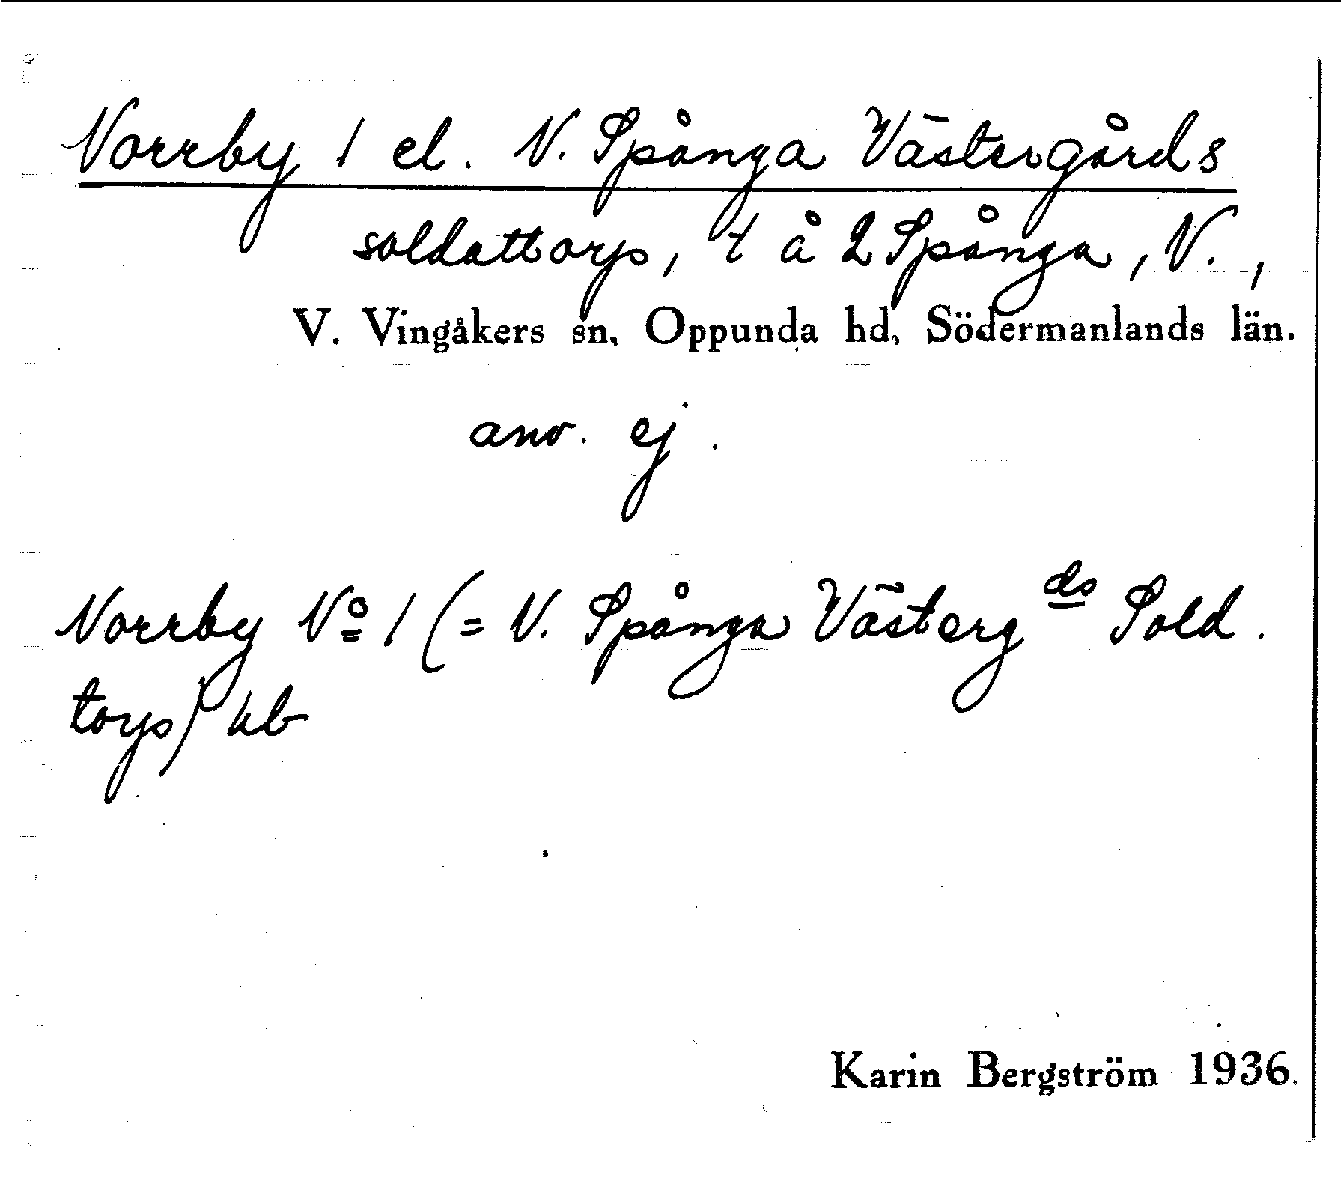 Norrby 1 el. N. Spånga Västergårds
soldattorp, t å 2 Spånga, N.,
V. Vingåkers sn, Oppunda hd, Södermanlands län.
anv. ej.
Norrby No 1 (= N. Spånga Västerg ds Sold.
torp) kb
Karin Bergström 1936.